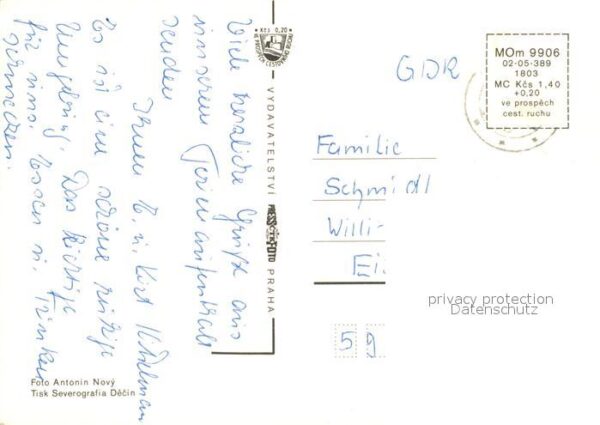 Viele herzliche Grüße aus
unserem Ferienaufenthalt
senden
Ihnen E. u. Kurt
Es ist eine schöne ruhige
Umgebung. Das Richtige
für uns. Essen u. Trinken
schmecken.
Kčs 0,20
VE PROSPĚCH CESTOVNÍHO RUCHU
VYDAVATELSTVÍ PRESSFOTO PRAHA
GDR
MOm 9906
02-05-389
1803
MC Kčs 1,40
+0,20
ve prospěch
cest. ruchu
Familie
Schmidl
Willi-
Ei
privacy protection
Datenschutz
59
Foto Antonin Nový
Tisk Severografia Děčín